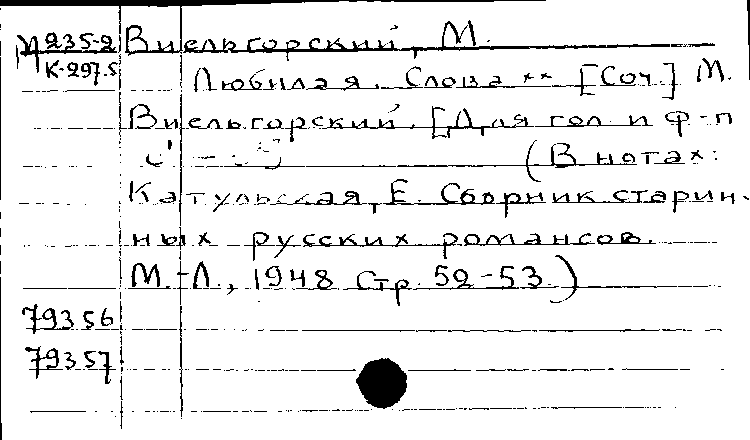 М 235-2 Виельгорский, М.
К-297.5
Любила я. Слова ** [Соч.] М.
Виельгорский. [Для гол и ф-п
(В нотах:
Катульская, Е. Сборник старин-
ных русских романсов.
М.-Л., 1948 Стр. 52-53.)
79356
79357